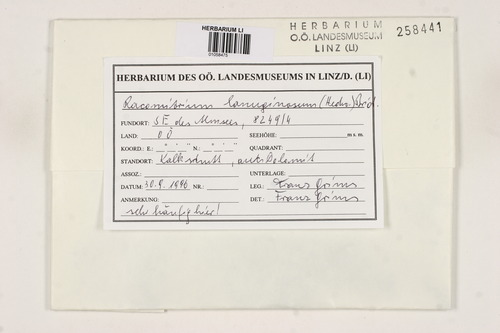 HERBARIUM LI
HERBARIUM
O.Ö. LANDESMUSEUM
LINZ (LI)
258441
HERBARIUM DES OÖ. LANDESMUSEUMS IN LINZ/D. (LI)
Racomitrium lanuginosum (Hedw.) Brid.
FUNDORT: SE des , 8249/4
LAND: OÖ SEEHÖHE: m s. m.
KOORD.: E.: ° ' " / N.: ° ' " QUADRANT:
STANDORT: Kalkschutt, auf Dolomit
ASSOZ.: UNTERLAGE:
DATUM: 30.9.1996 NR.: LEG.: Franz Grims
ANMERKUNG: DET.: Franz Grims
sehr häufig hier!